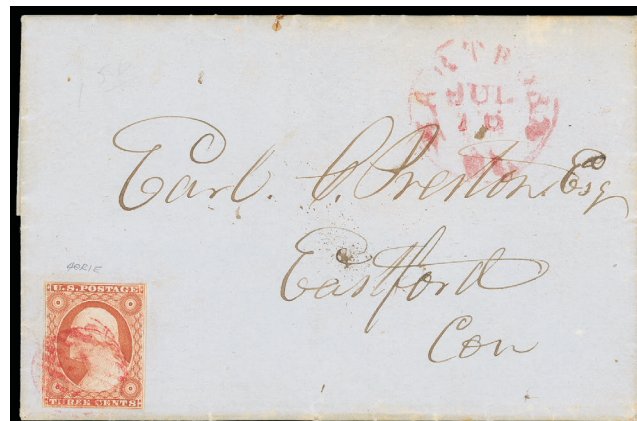 JUL
Earl. C. Preston, Esq
Eastford
Con
40R1E
U.S. POSTAGE.
THREE CENTS